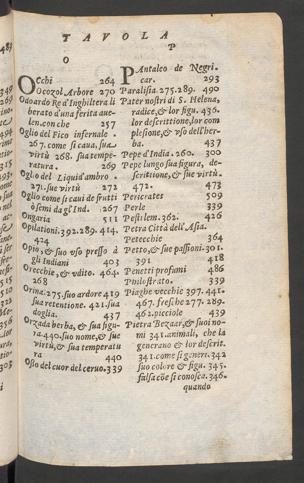 TAVOLA
O
Occhi 264
Ocozol Arbore 270
Odoardo Re d'Inghiltera li
berato d'una ferita aue-
len. con che 257
Oglio del Fico infernale .
267. come si caua, sua
virtù 268. sua tempe-
ratura 269
Oglio del Liquid'ambro .
271. sue virtù 272
Oglio come si caui de frutti
ò semi dagl' Ind. 267
Ongaria 511
Opilationi. 392. 289. 414.
424
Opio, & suo vso presso à
gli Indiani 403
Orecchie, & vdito. 464.
268
Orina. 275. suo ardore 419
sua retentione. 421. sua
doglia. 437
Orzada herba, & sua figu-
ra 440. suo nome, & sue
virtù, & sua temperatu
ra 440
Osso del cuor del ceruo. 339
P
PAntaleo de Negri.
car. 293
Paralisia. 275. 289. 490
Pater nostri di S. Helena,
radice, & lor figu. 436.
lor descrittione, lor com
plesione, & vso dell'her-
ba. 437
Pepe d'India. 260. 300
Pepe lungo sua figura, de-
scrittione, & sue virtù.
472. 473
Pericrates 509
Perle 339
Pestilem. 362. 426
Petra Città dell'Asia.
Petecchie 364
Petto, & sue passioni. 301.
391 418
Penetti profumi 486
Philostrato. 339
Piaghe vecchie 397. 441.
467. fresche 277. 289.
462. picciole 439
Pietra Bezaar, & suoi no-
mi 341. animali, che la
generano & lor descrit.
341. come si generi. 342
suo colore & figu. 345.
falsa cõe si conosca. 346.
quando